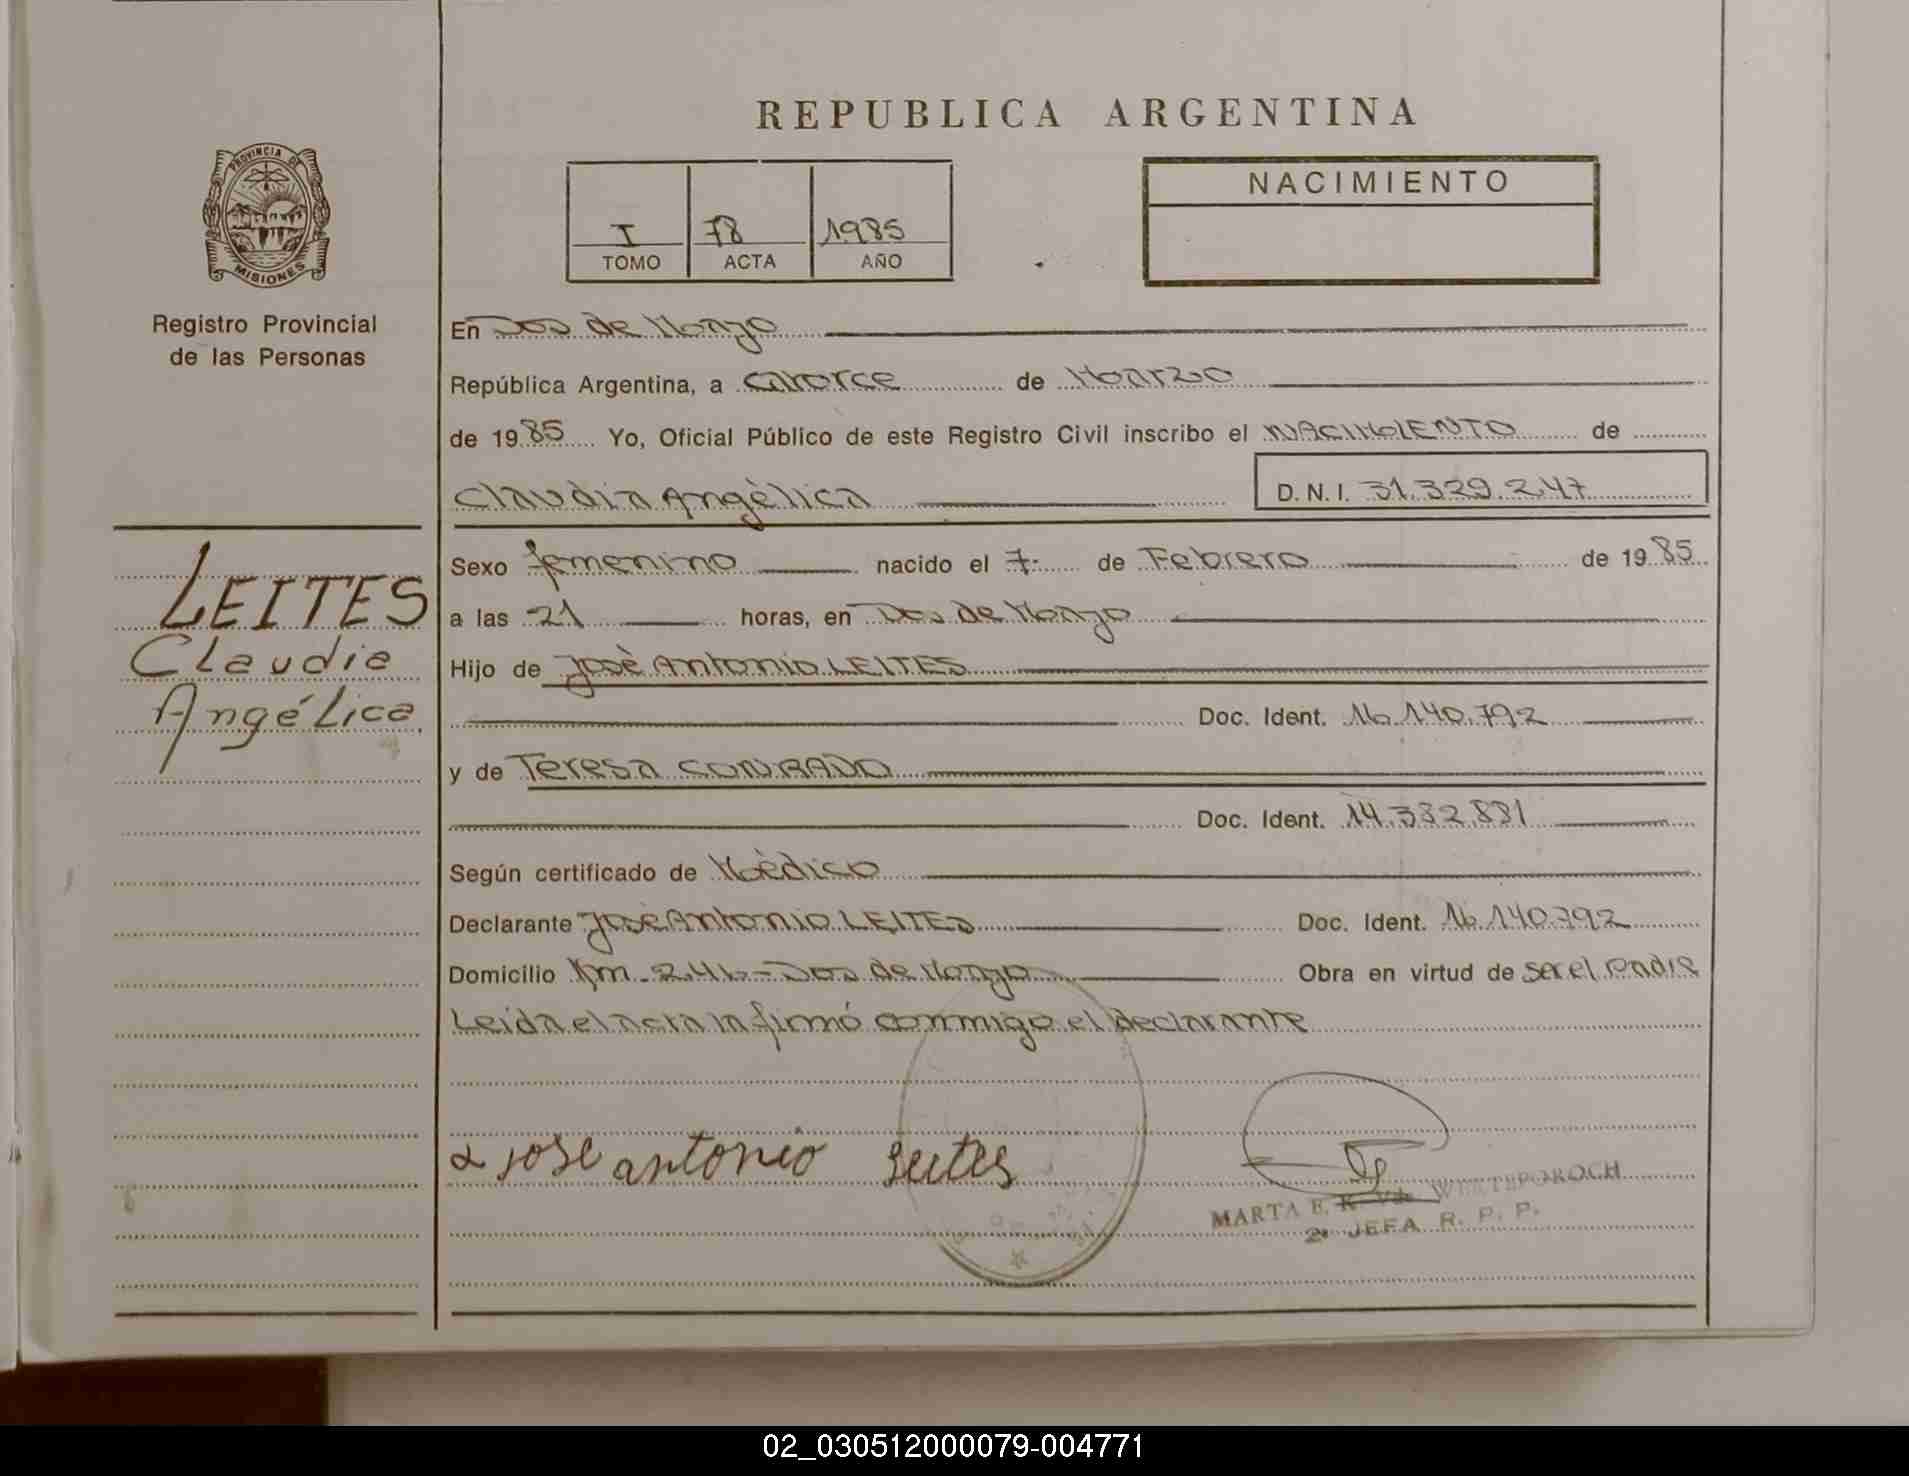 REPUBLICA ARGENTINA
PROVINCIA DE
MISIONES
Registro Provincial
de las Personas
I 78 1985
TOMO ACTA AÑO
NACIMIENTO
En Dos de Mayo
República Argentina, a catorce de Marzo
de 1985 Yo, Oficial Público de este Registro Civil inscribo el NACIMIENTO de
Claudia Angèlica D.N.I. 31.329.247
LEITES
Claudia
Angélica
Sexo femenino nacido el 7 de Febrero de 1985
a las 21 horas, en Dos de Mayo
Hijo de Josè Antonio LEITES
Doc. Ident. 16.140.792
y de Teresa CONRADO
Doc. Ident. 14.332.881
Según certificado de Mèdico
Declarante Josè Antonio LEITES Doc. Ident. 16.140.792
Domicilio Km. 246 - Dos de Mayo Obra en virtud de ser el padre
Leida el acta la firmó conmigo el declarante
jose antonio Leites
MARTA E.
2º JEFA R. P. P.
02_030512000079-004771